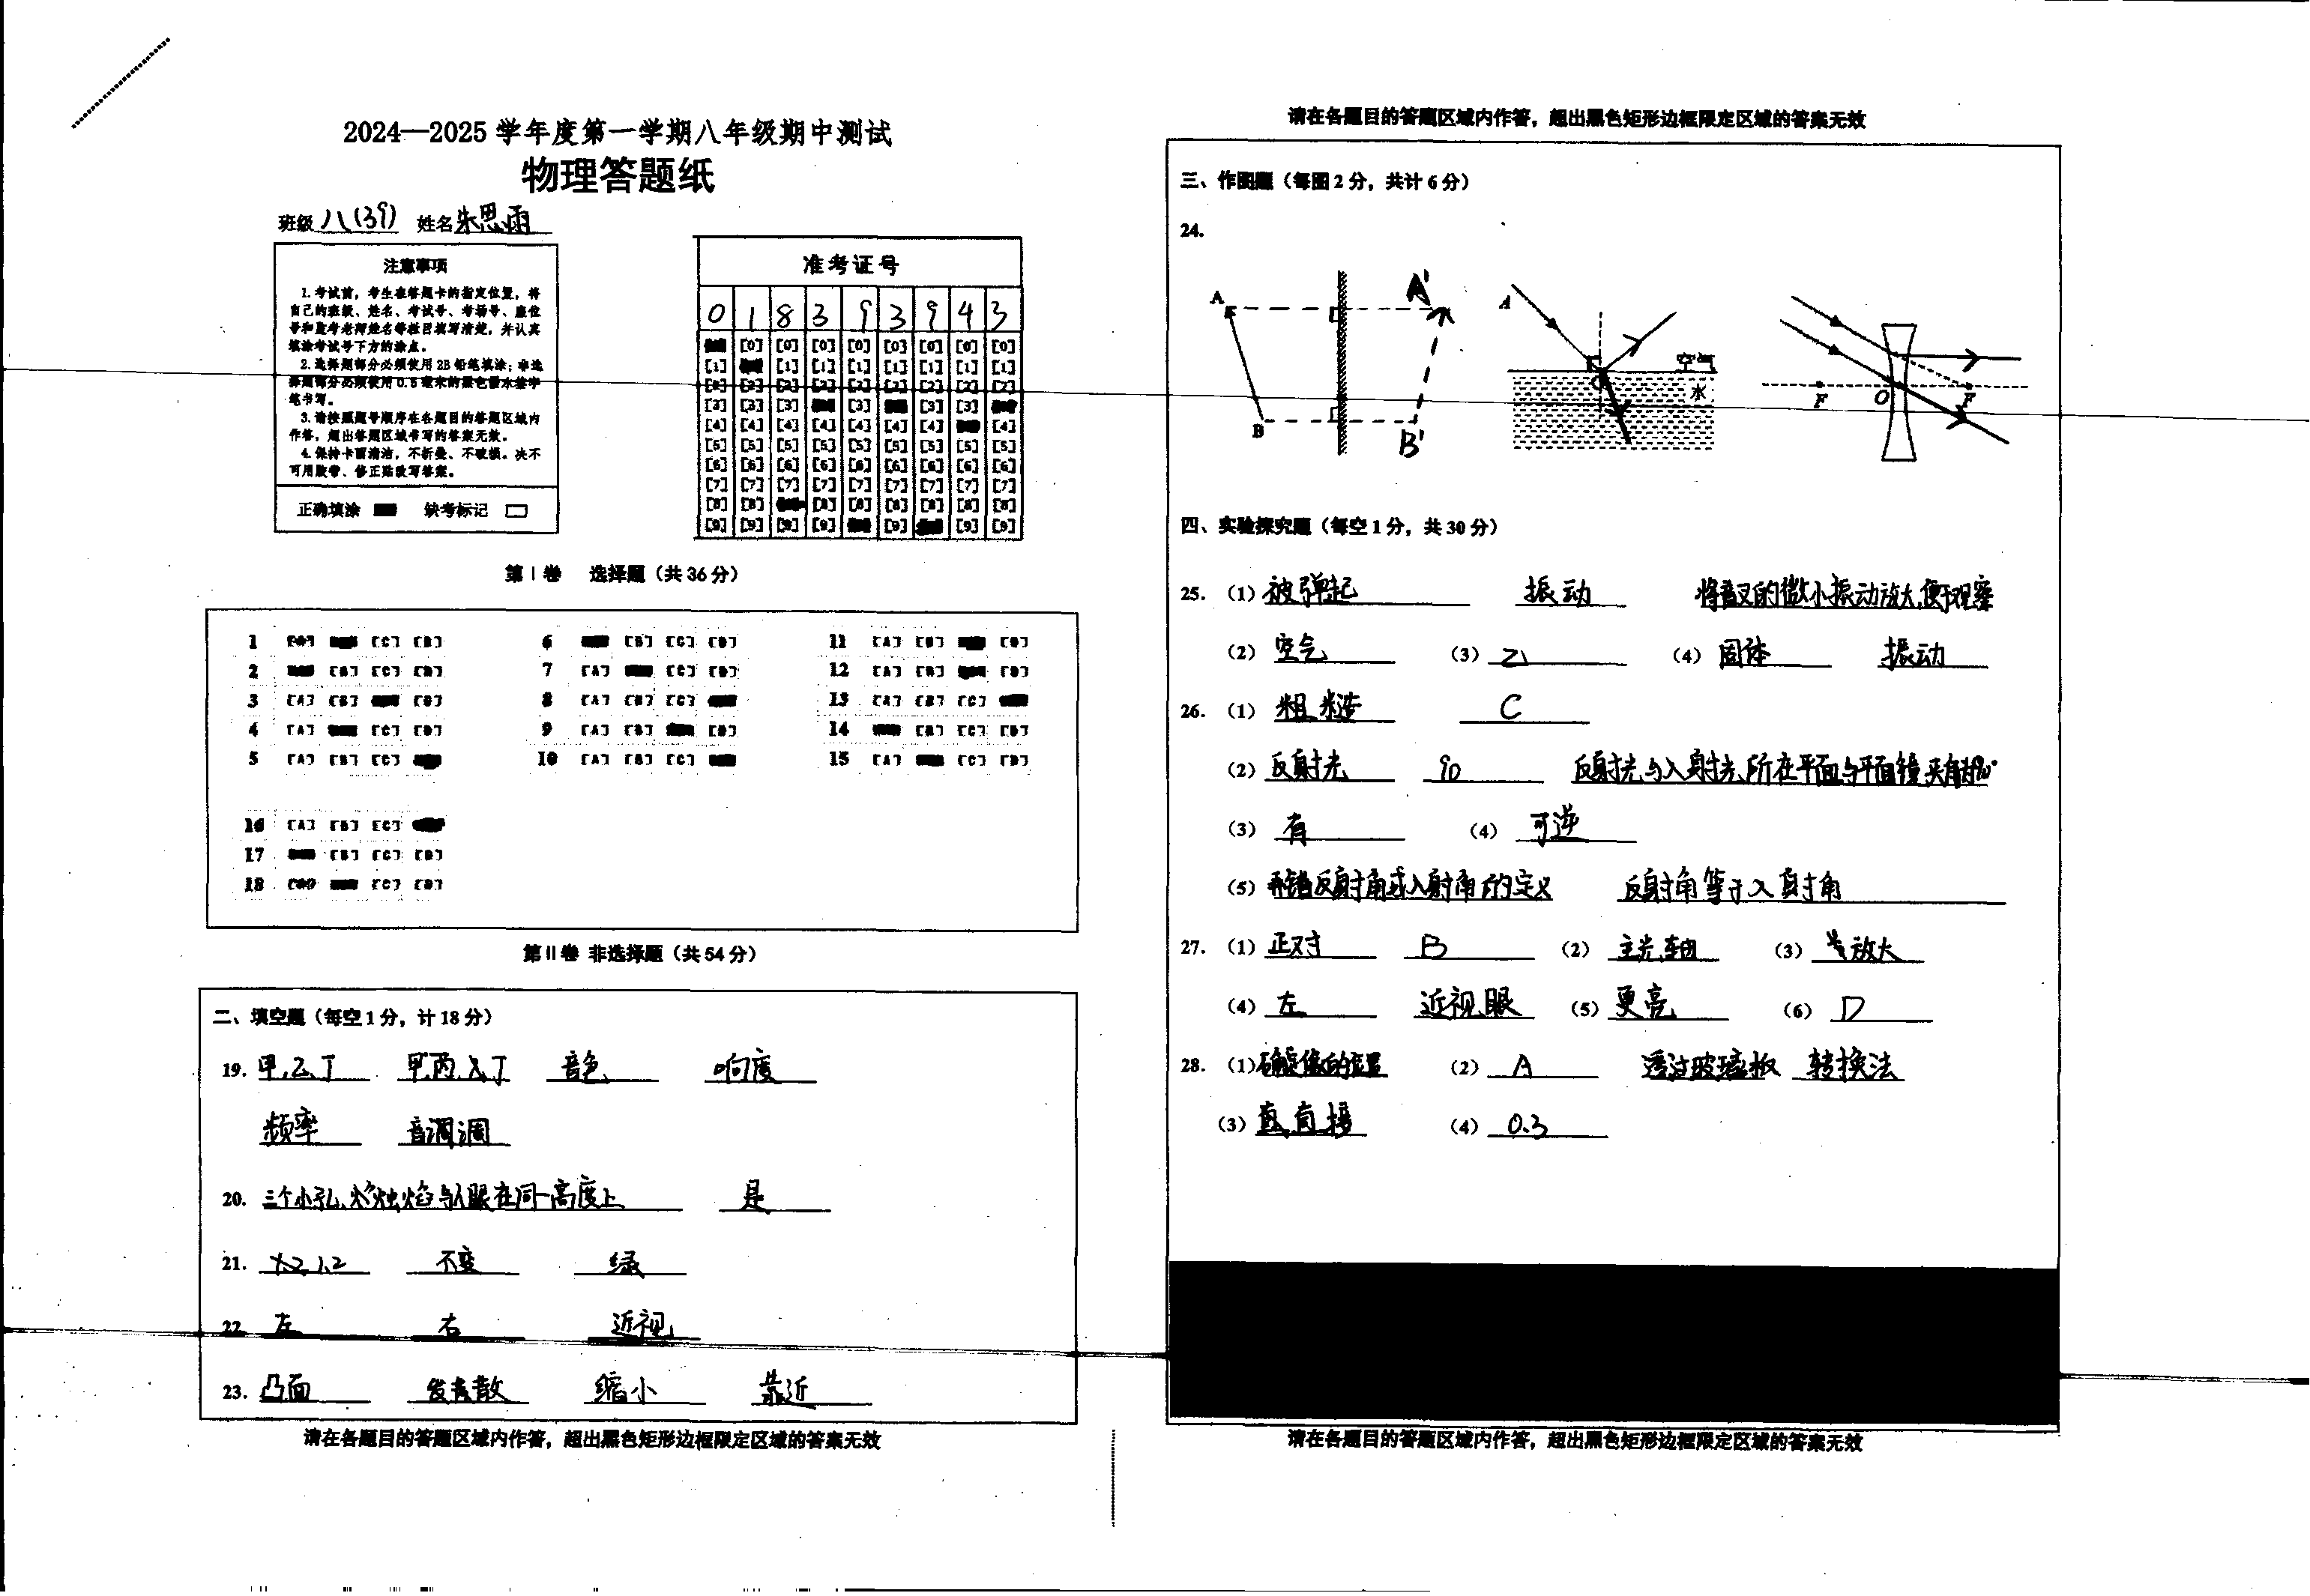 2024—2025 学年度第一学期八年级期中测试
物理答题纸
班级 八(39) 姓名 朱思雨
注意事项
1.考试前，考生在答题卡的指定位置，将
自己的班级、姓名、考试号、考场号、座位
号和监考老师姓名等栏目填写清楚，并认真
填涂考试号下方的涂点。
2.选择题部分必须使用 2B 铅笔填涂；非选
择题部分必须使用 0.5 毫米的黑色墨水签字
笔书写。
3.请按照题号顺序在各题目的答题区域内
作答，超出答题区域书写的答案无效。
4.保持卡面清洁，不折叠、不破损。决不
可用胶带、修正贴改写答案。
正确填涂 缺考标记
准考证号
0 1 8 3 9 3 9 4 3
[0] [0] [0] [0] [0] [0] [0] [0]
[1] [1] [1] [1] [1] [1] [1] [1]
[2] [2] [2] [2] [2] [2] [2] [2] [2]
[3] [3] [3] [3] [3] [3]
[4] [4] [4] [4] [4] [4] [4] [4]
[5] [5] [5] [5] [5] [5] [5] [5] [5]
[6] [6] [6] [6] [6] [6] [6] [6] [6]
[7] [7] [7] [7] [7] [7] [7] [7] [7]
[8] [8] [8] [8] [8] [8] [8] [8]
[9] [9] [9] [9] [9] [9] [9]
第Ⅰ卷 选择题（共 36 分）
1 [A] [C] [D] 6 [B] [C] [D] 11 [A] [B] [D]
2 [B] [C] [D] 7 [A] [C] [D] 12 [A] [B] [D]
3 [A] [B] [D] 8 [A] [B] [C] 13 [A] [B] [C]
4 [A] [C] [D] 9 [A] [B] [D] 14 [B] [C] [D]
5 [A] [B] [C] 10 [A] [B] [C] 15 [A] [C] [D]
16 [A] [B] [C]
17 [B] [C] [D]
18 [A] [C] [D]
第Ⅱ卷 非选择题（共 54 分）
二、填空题（每空 1 分，计 18 分）
19. 甲、乙、丁 甲、丙、丁 音色 响度
频率 音调
20. 三个小孔、烛焰与人眼在同一高度上 是
21. 1.2 不变 绿
22. 左 右 近视
23. 凸面 发散 缩小 靠近
请在各题目的答题区域内作答，超出黑色矩形边框限定区域的答案无效
请在各题目的答题区域内作答，超出黑色矩形边框限定区域的答案无效
三、作图题（每图 2 分，共计 6 分）
24.
A A' B B'
A 空气 水 O
F O F
四、实验探究题（每空 1 分，共 30 分）
25.（1）被弹起 振动 将音叉的微小振动放大,便于观察
（2）空气 （3）乙 （4）固体 振动
26.（1）粗糙 C
（2）反射光 90 反射光与入射光所在平面与平面镜夹角为90°
（3）有 （4）可逆
（5）弄错反射角或入射角的定义 反射角等于入射角
27.（1）正对 B （2）主光轴 （3）放大
（4）左 近视眼 （5）更亮 （6）D
28.（1）确定像的位置 （2）A 透过玻璃板 转换法
（3）直接 （4）0.3
请在各题目的答题区域内作答，超出黑色矩形边框限定区域的答案无效